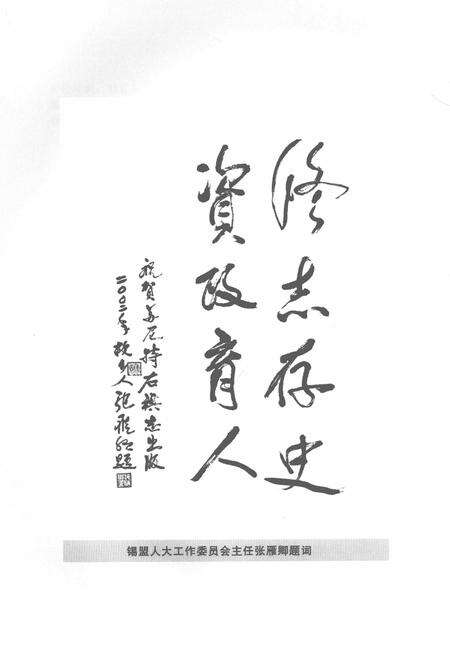 修志存史
資政育人
祝賀苏尼特右旗志出版
二00二年 牧人張雁卿題
锡盟人大工作委员会主任张雁卿题词